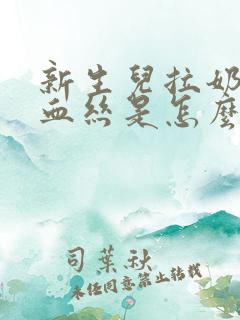 新生兒拉奶
血絲是怎麼
司葉秋
未经同意禁止转载